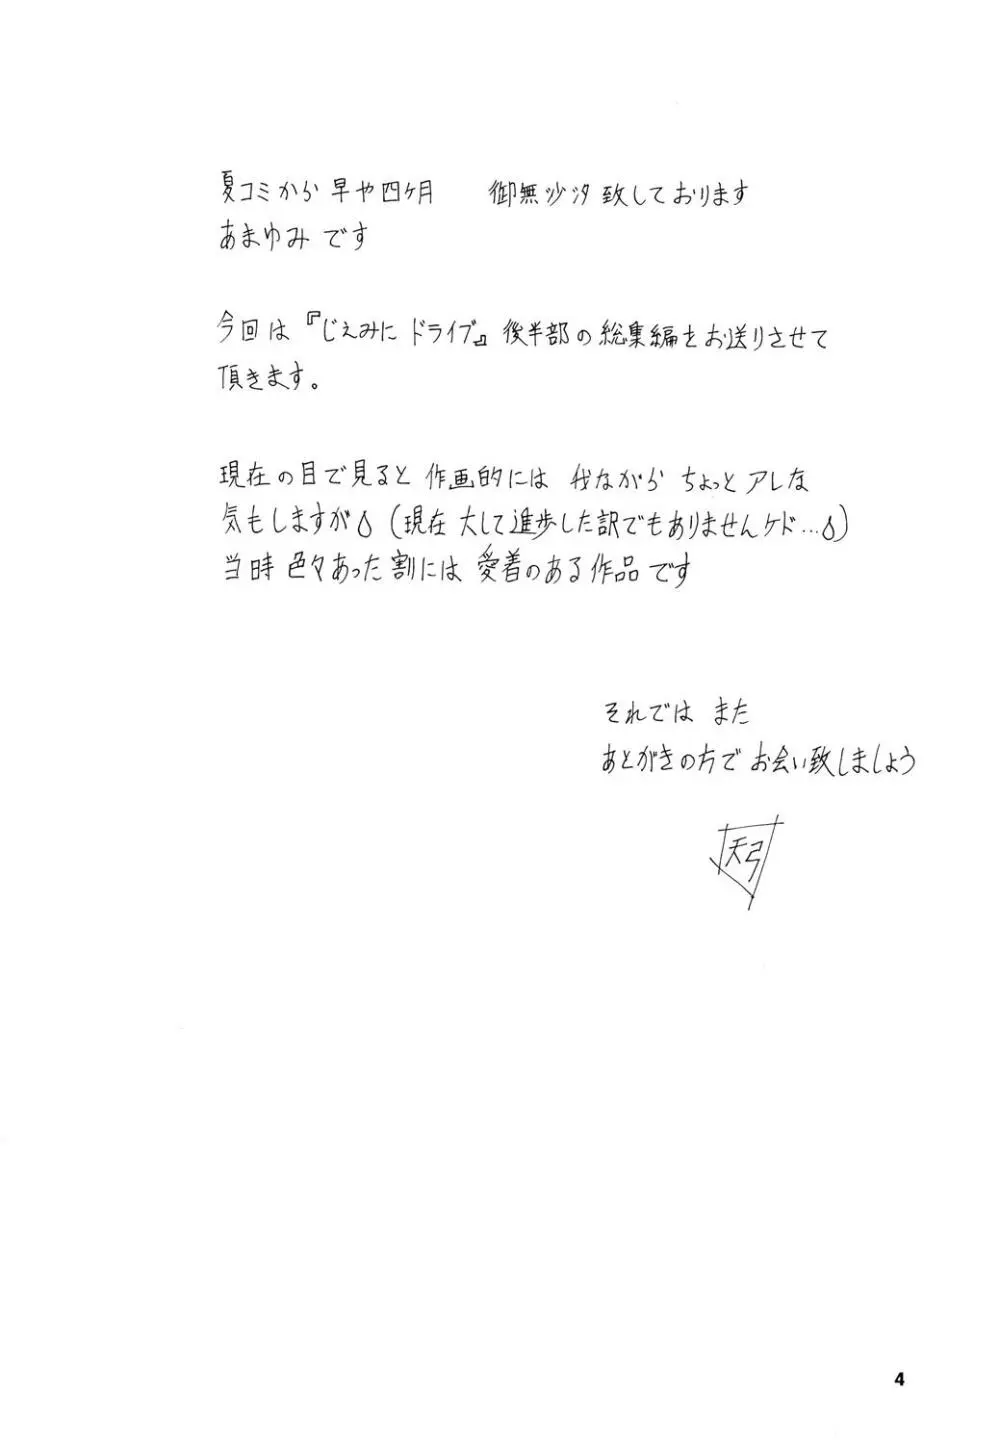 夏コミから 早や四ケ月　　御無沙汐致しております
あまゆみ です
今回は『じえみに ドライブ』後半部の総集編をお送りさせて
頂きます。
現在の目で見ると 作画的には 我ながら ちょっと アレな
気もしますが (現在 大して進歩した訳でもありませんケド…)
当時 色々あった割には 愛着のある作品です
それでは また
あとがきの方で お会い致しましょう
天弓
4